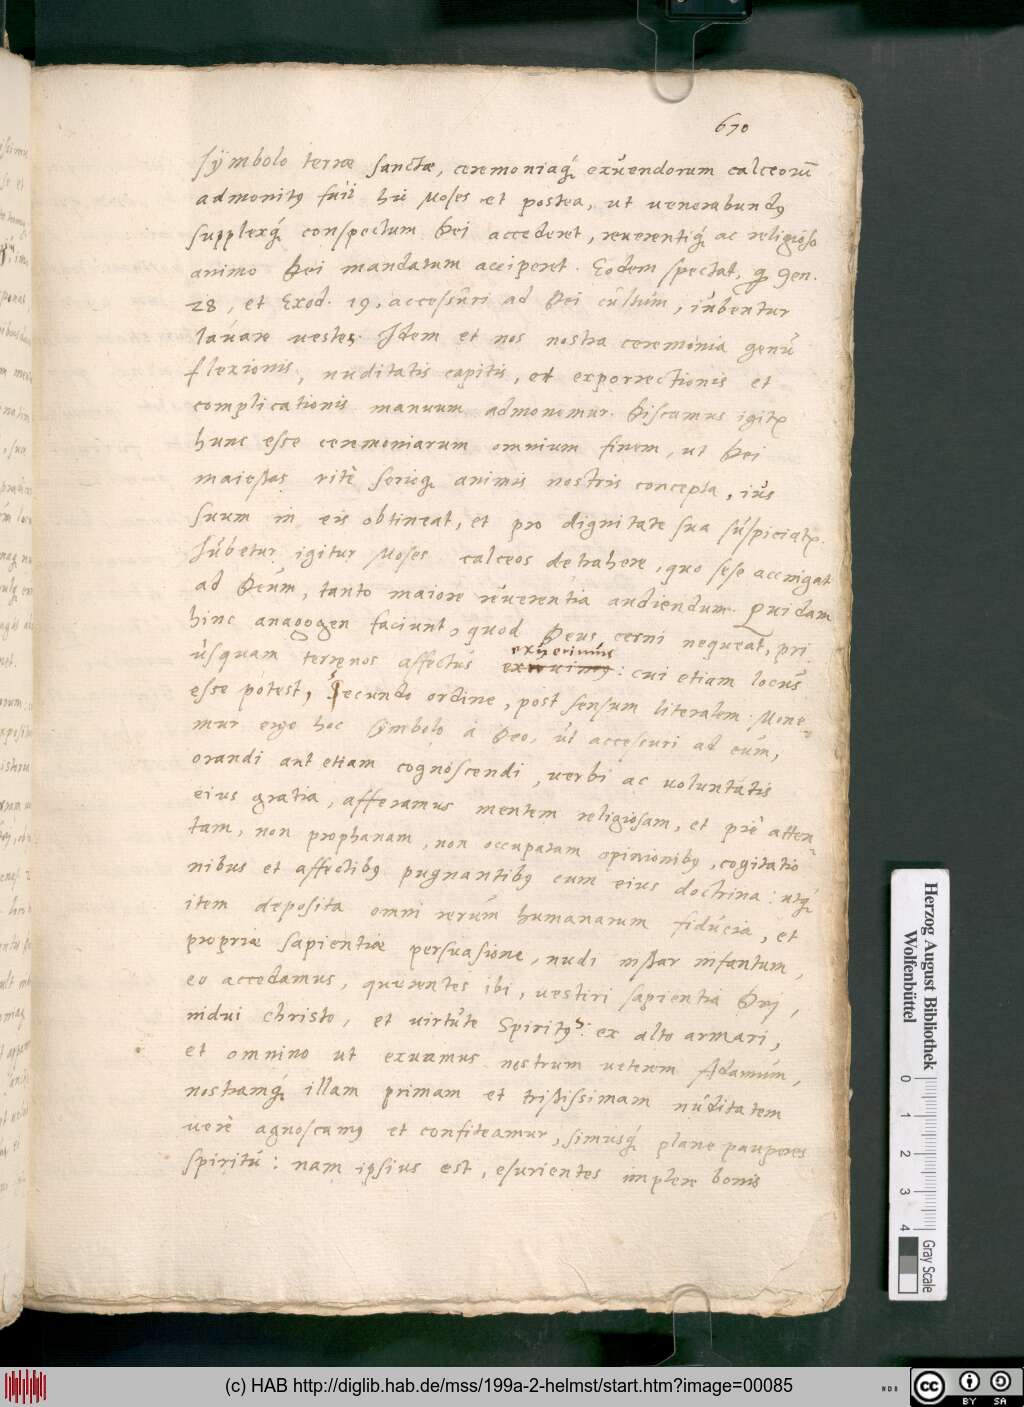 670
symbolo terræ sanctæ, ceremoniaq́; exuendorum calceorū
admonitꝰ fuit hîc Moses et postea, ut venerabundꝰ
supplexq́; conspectum Dei accederet, reverentiq́; ac religioso
animo Dei mandatum acciperet. Eodem spectat, qȝ Gen.
28, et Exod. 19, accessuri ad Dei cultum, iubentur
lavare vestes. Idem et nos nostra ceremonia genu
flexionis, nuditatis capitis, et exporrectionis et
complicationis manuum admonemur. Discamus igitꝛ
hunc esse ceremoniarum omnium finem, ut Dei
maiestas ritè serioq; animis nostris concepta, ius
suum in eis obtineat, et pro dignitate sua suspiciatꝛ.
Iubetur igitur Moses calceos detrahere, quo sese accingat
ad Deum, tanto maiore reverentia audiendum. Quidam
hinc anagogen faciunt, quod Deus cerni nequeat, pri
exuerimus
usquam terrenos affectus exuimꝰ: cui etiam locus
esse potest, Secundo ordine, post sensum literalem. Mone-
mur ergo hoc symbolo à Deo, ut accessuri ad eum,
orandi aut etiam cognoscendi, verbi ac voluntatis
eius gratia, afferamus mentem religiosam, et piè atten-
tam, non prophanam, non occupatam opinionibꝰ, cogitatio-
nibus et affectibꝰ pugnantibꝰ cum eius doctrina: utq́;
item deposita omni rerum humanarum fiducia, et
propriæ sapientiæ persuasione, nudi instar infantum,
eo accedamus, quærentes ibi, vestiri sapientia Dei,
indui Christo, et virtute Spiritꝰ S: ex alto armari,
et omnino ut exuamus nostrum veterem Adamum,
nostramq́; illam primam et tristissimam nuditatem
verè agnoscamꝰ et confiteamur, simusq́; plane pauperes
spiritu: nam ipsius est, esurientes implere bonis
Herzog August Bibliothek
Wolfenbüttel
0 1 2 3 4
Gray Scale
(c) HAB http://diglib.hab.de/mss/199a-2-helmst/start.htm?image=00085
cc BY SA